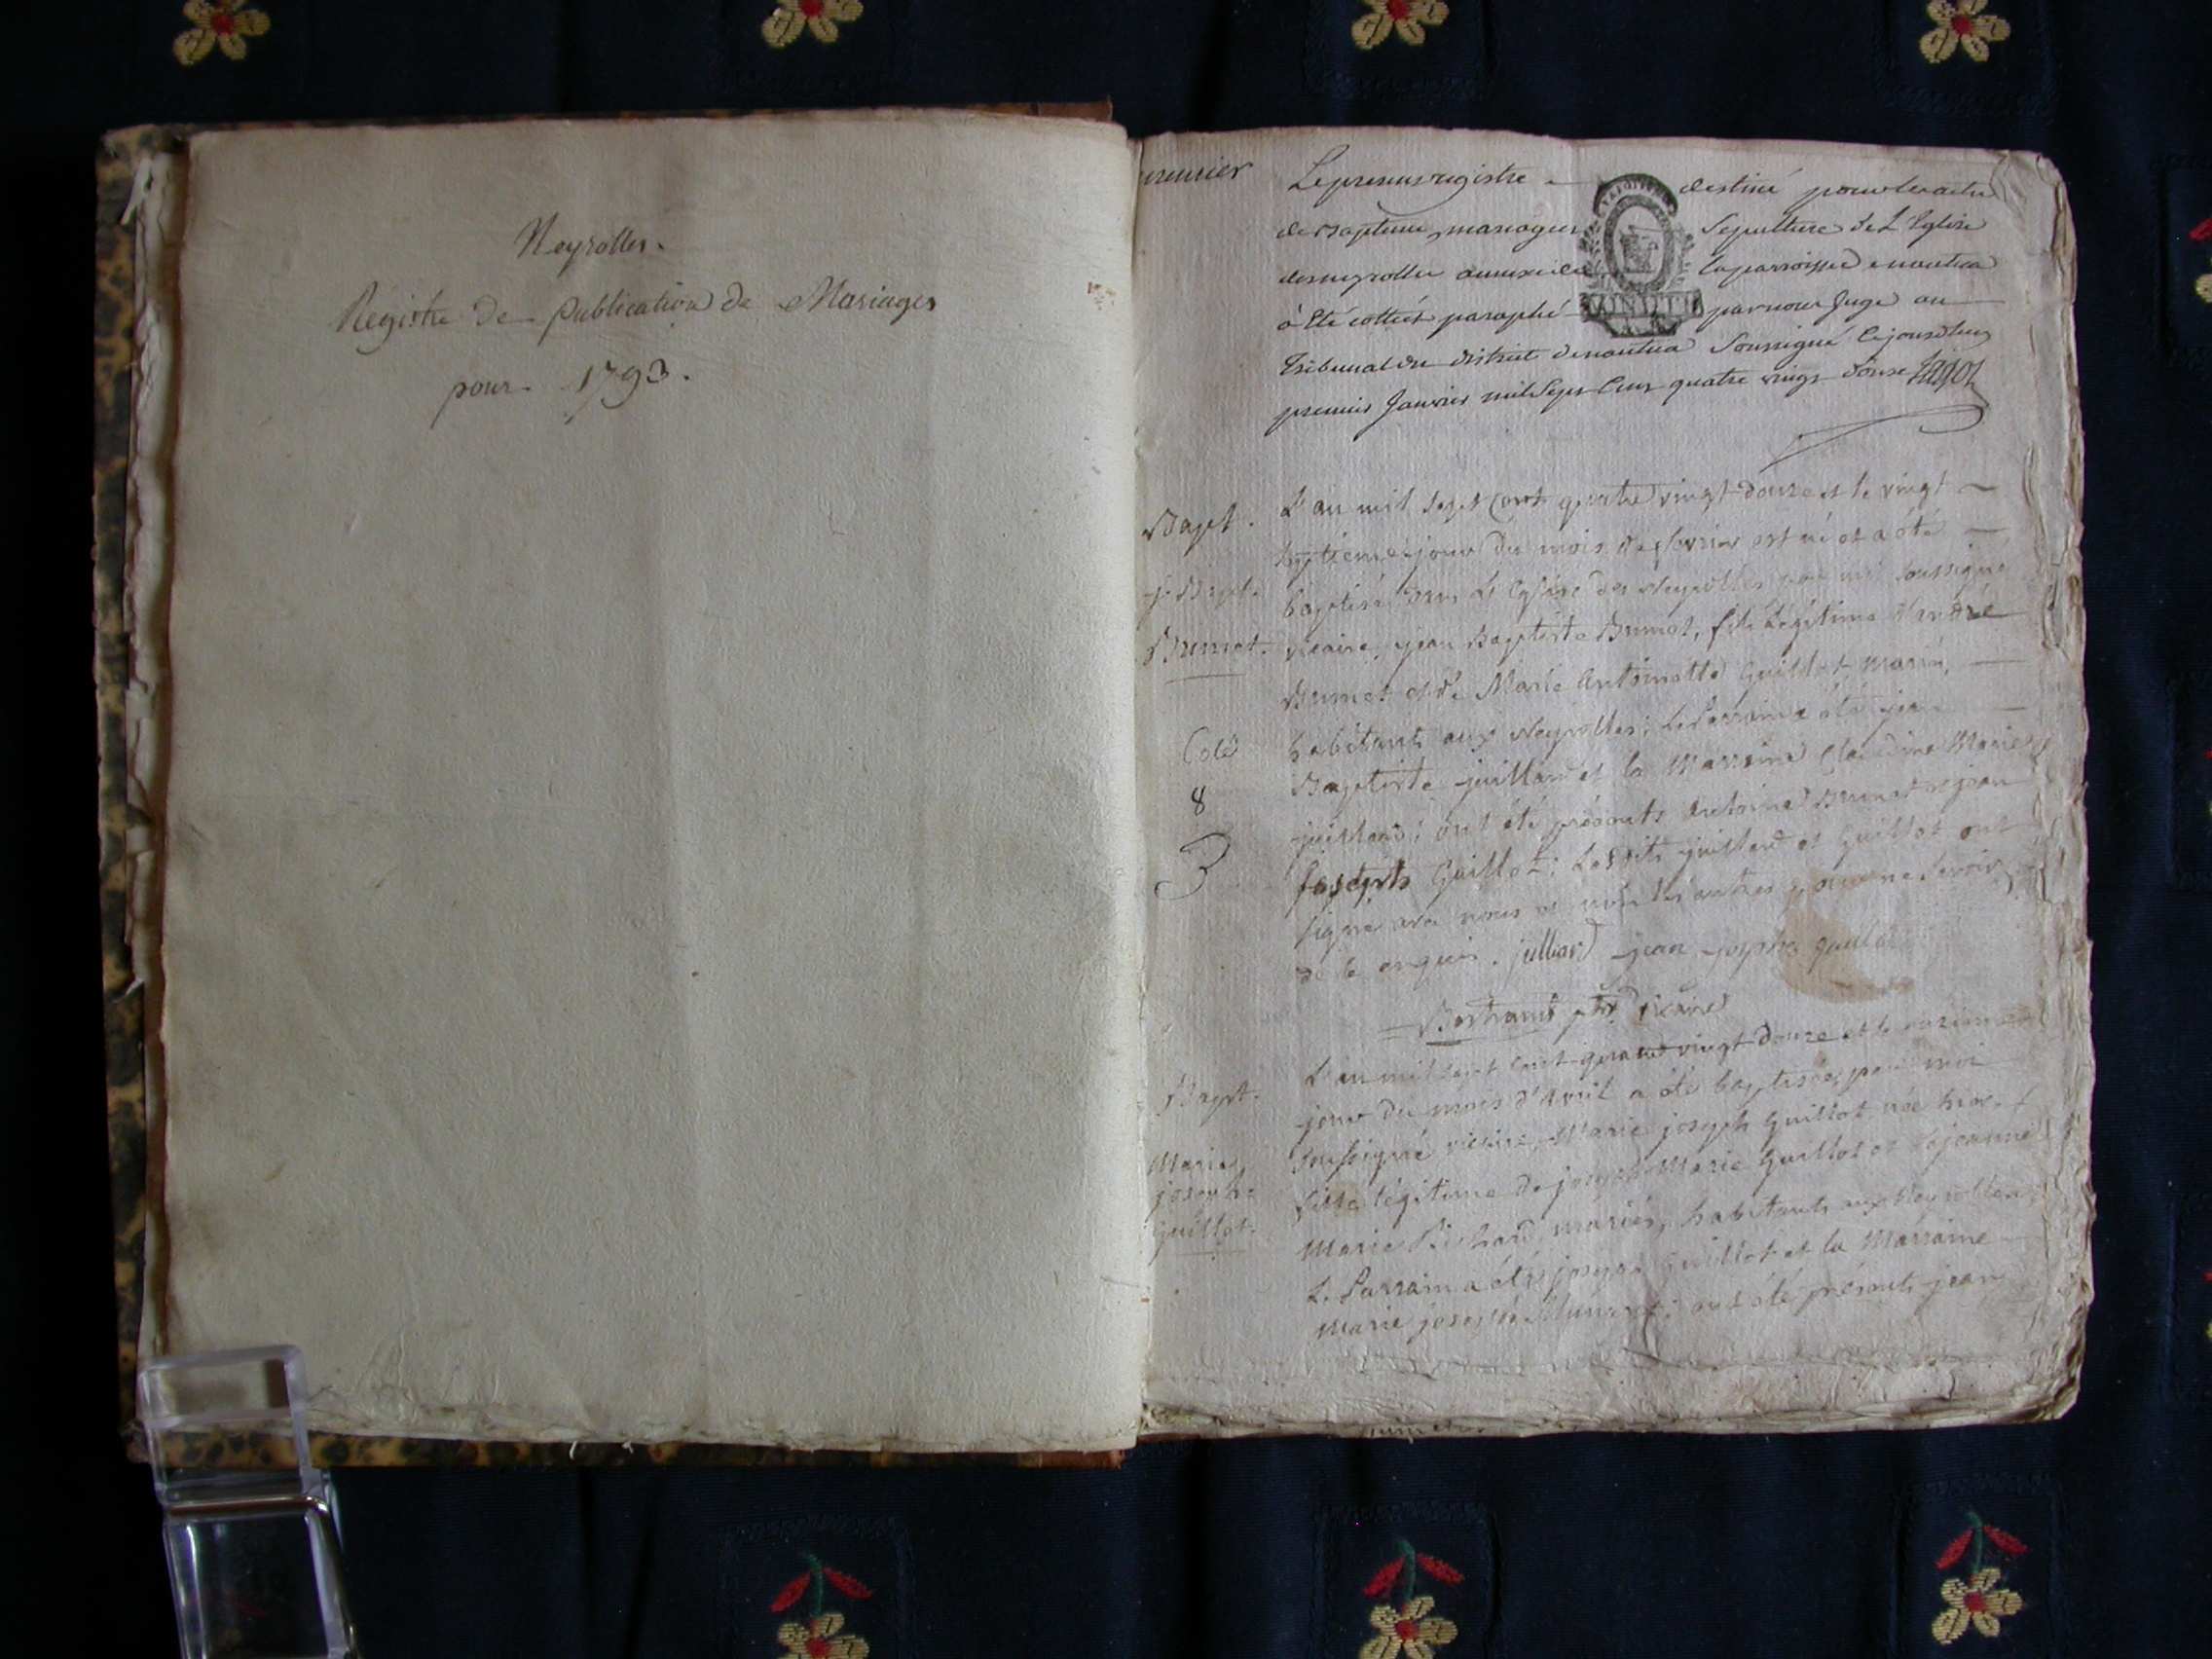 Neyrolles.
Régistre de publication de Mariages
pour 1793.
premier
Le present registre destiné pour les actes
de Baptemes mariages Sepulture de L'Eglise
des neyrolles annexe de la parroisse de nantua
à Eté cotté et paraphé par nous Juge au
tribunal du district de nantua Soussigné le jourd'huy
premier Janvier mil Sept Cent quatre vingt douse
Bapt.
j. Bapt.
Brunet.
Coté
8
3
L'an mil sept Cent quatre vingt douze et le vingt
septième jour du mois de fevrier est né et a été
baptisé dans L'Eglise des Neyrolles par moi soussigné
vicaire, jean Baptiste Brunet, fils Légitime d'andré
Brunet et de Marie Antoinette Guillot mariés,
habitants aux Neyrolles; Le Parrain a été jean
Baptiste juillard et la Marraine Claudine Marie
juillard; ont été présents Antoine Brunet et jean
joseph Guillot: Les dits juillard et Guillot ont
signé avec nous et non les autres pour ne savoir
de ce enquis. julliard jean joseph guillot
Bertrand ptre vicaire
Bapt.
Marie
joseph
guillot.
L'an mil sept Cent quatre vingt douze et le onzieme
jour du mois d'avril a été baptisée par moi
Soussigné vicaire, Marie joseph Guillot née hier
fille légitime de joseph Marie Guillot et
Marie mariés, habitants aux Neyrolles
Le Parrain a été joseph Guillot et la Marraine
Marie joseph ont été présents jean